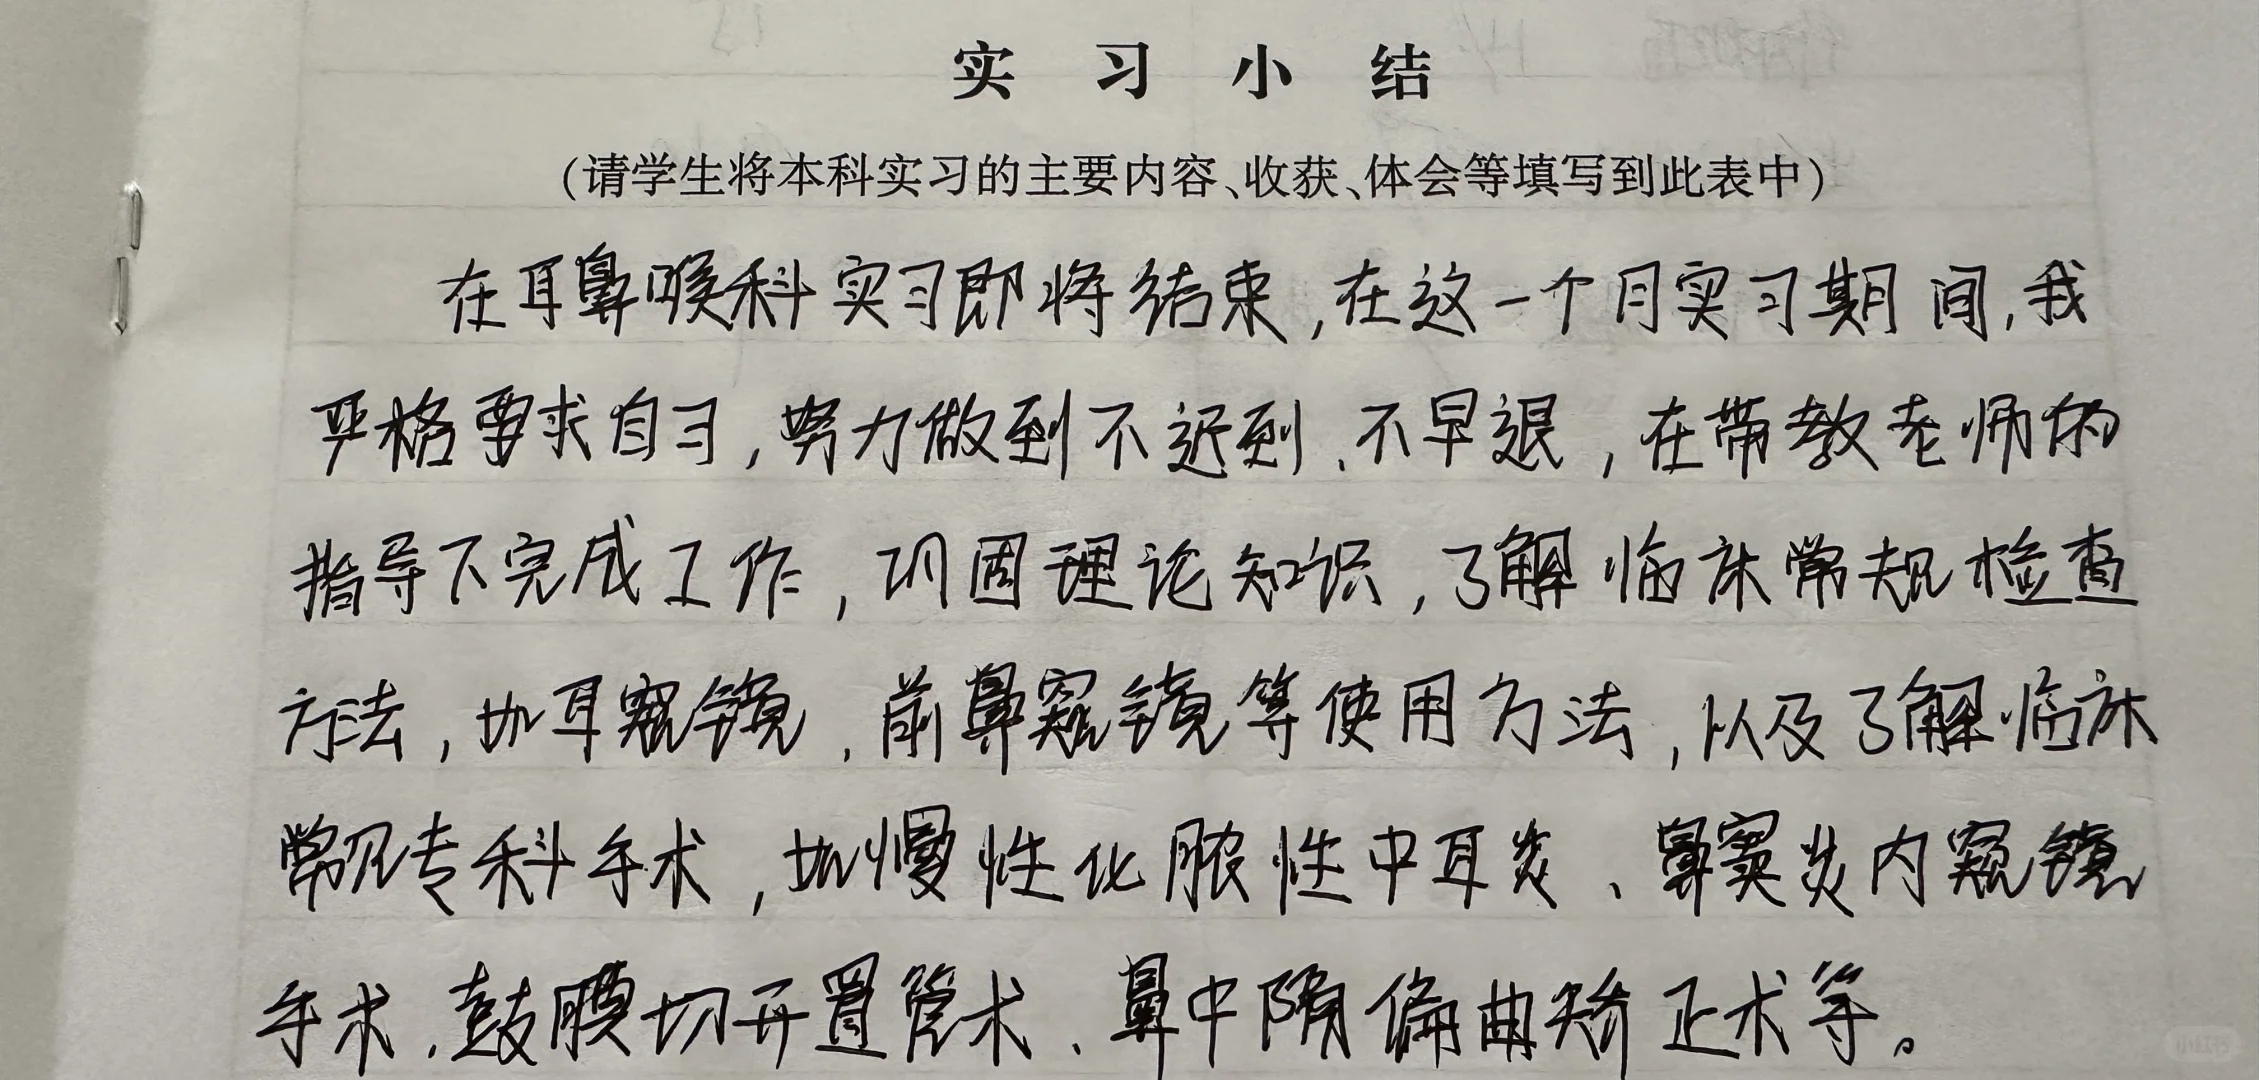 实习小结
(请学生将本科实习的主要内容、收获、体会等填写到此表中)
在耳鼻喉科实习即将结束,在这一个月实习期间,我
严格要求自己,努力做到不迟到、不早退,在带教老师的
指导下完成工作,巩固理论知识,了解临床常规检查
方法,如耳窥镜、前鼻窥镜等使用方法,以及了解临床
常见专科手术,如慢性化脓性中耳炎、鼻窦炎内窥镜
手术、鼓膜切开置管术、鼻中隔偏曲矫正术等。